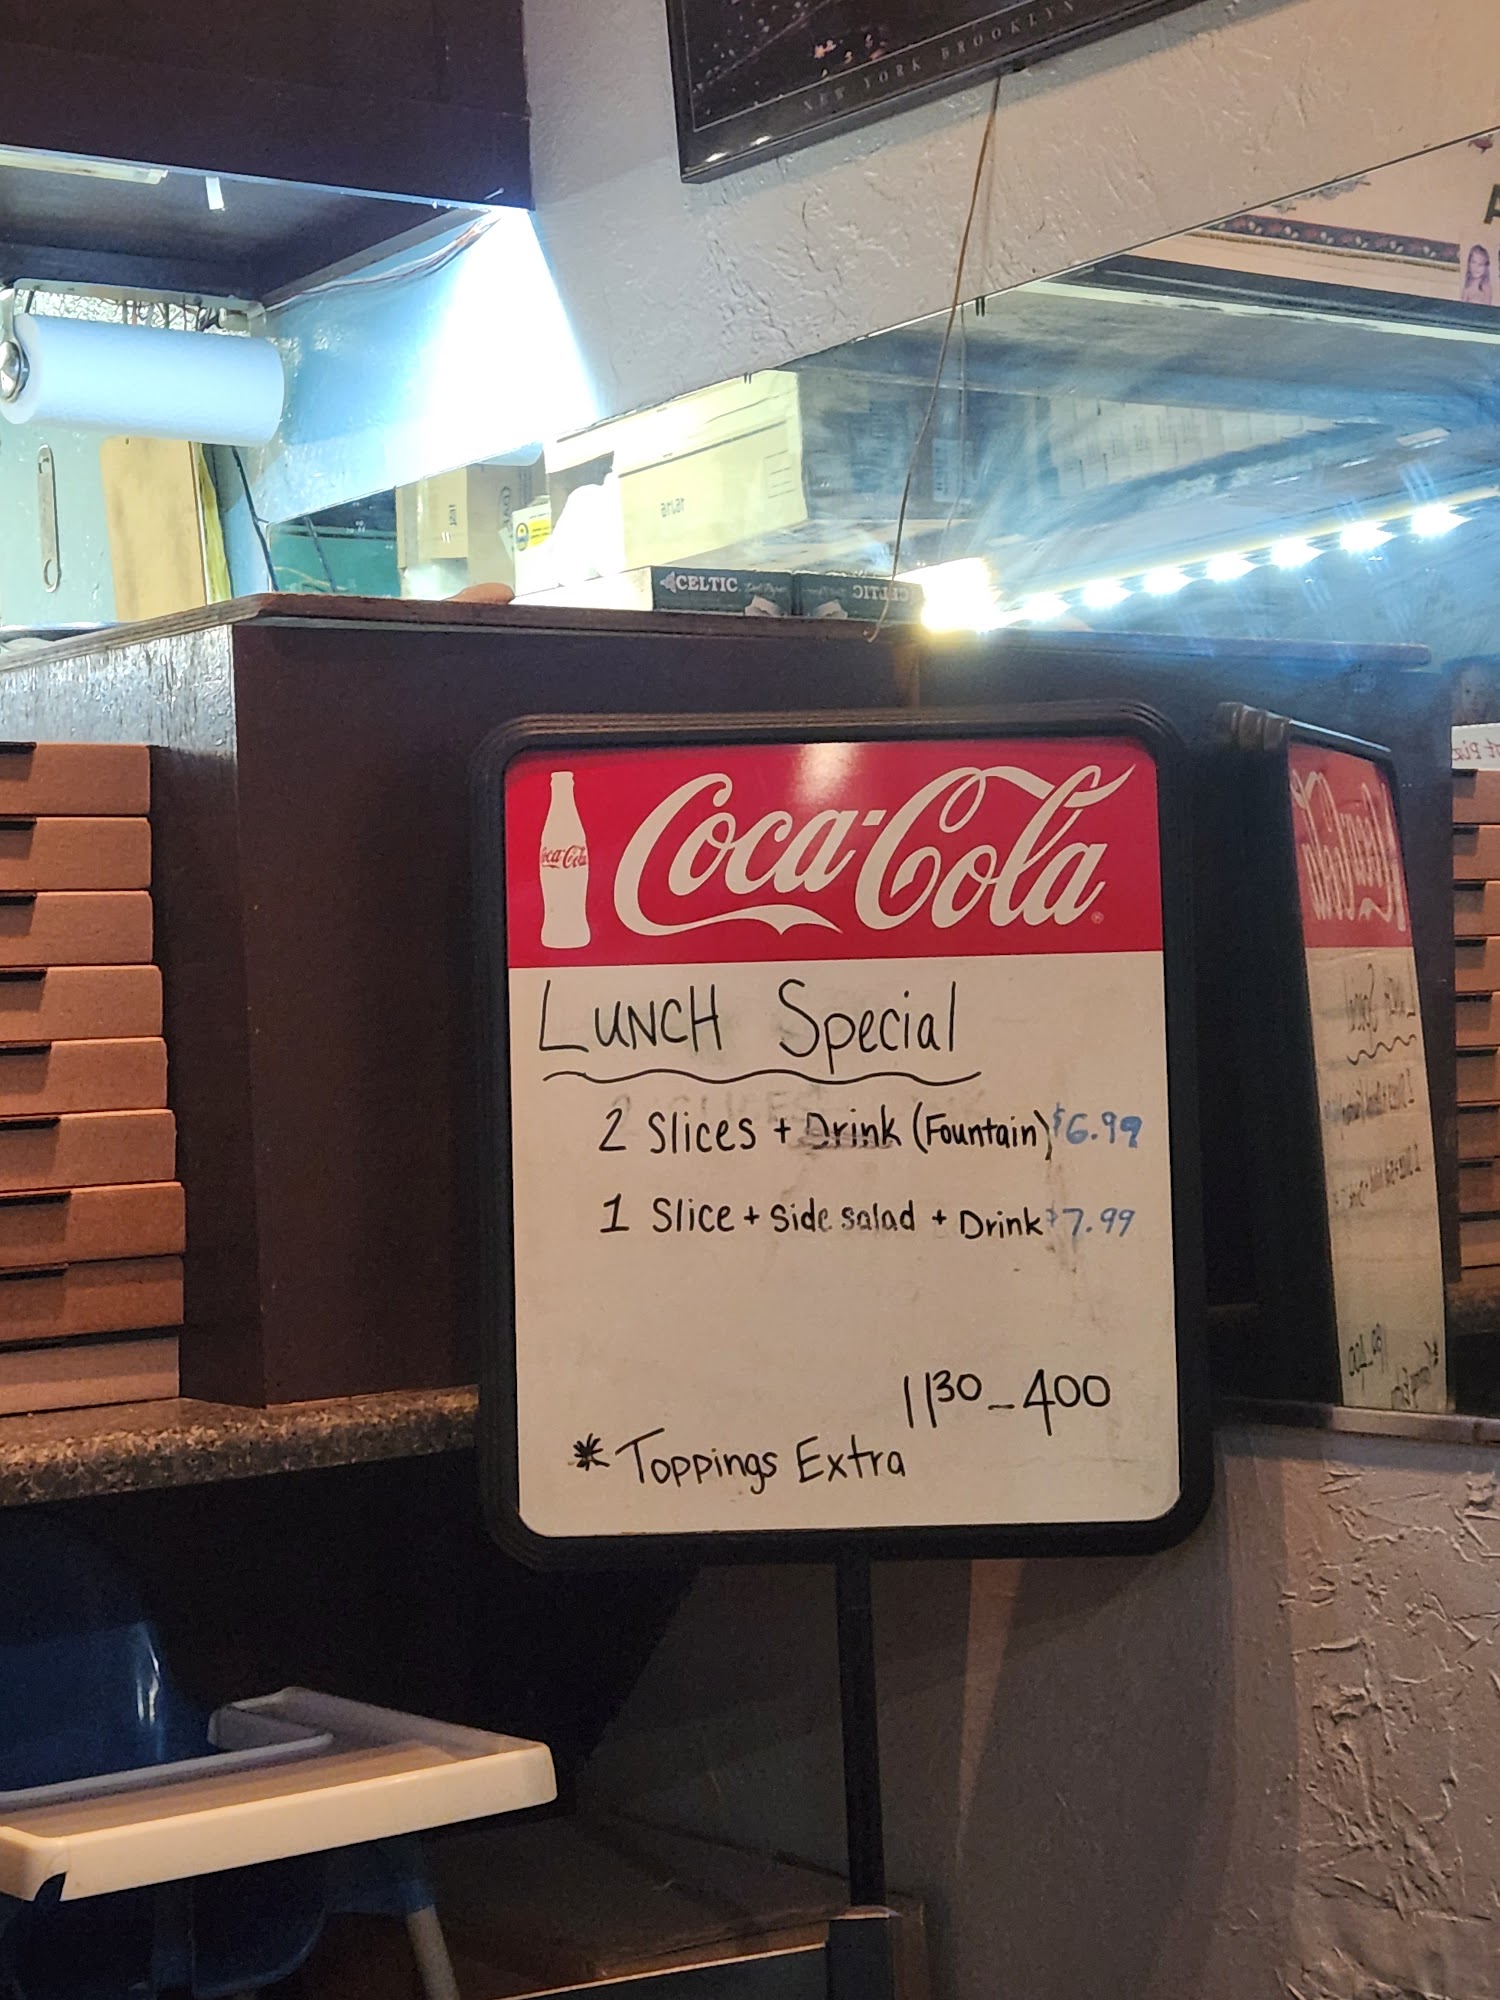 NEW YORK BROOKLYN
CELTIC
Coca-Cola
Coca-Cola
LUNCH Special
2 Slices + Drink (Fountain) $6.99
1 Slice + Side salad + Drink $7.99
11³⁰-4⁰⁰
* Toppings Extra